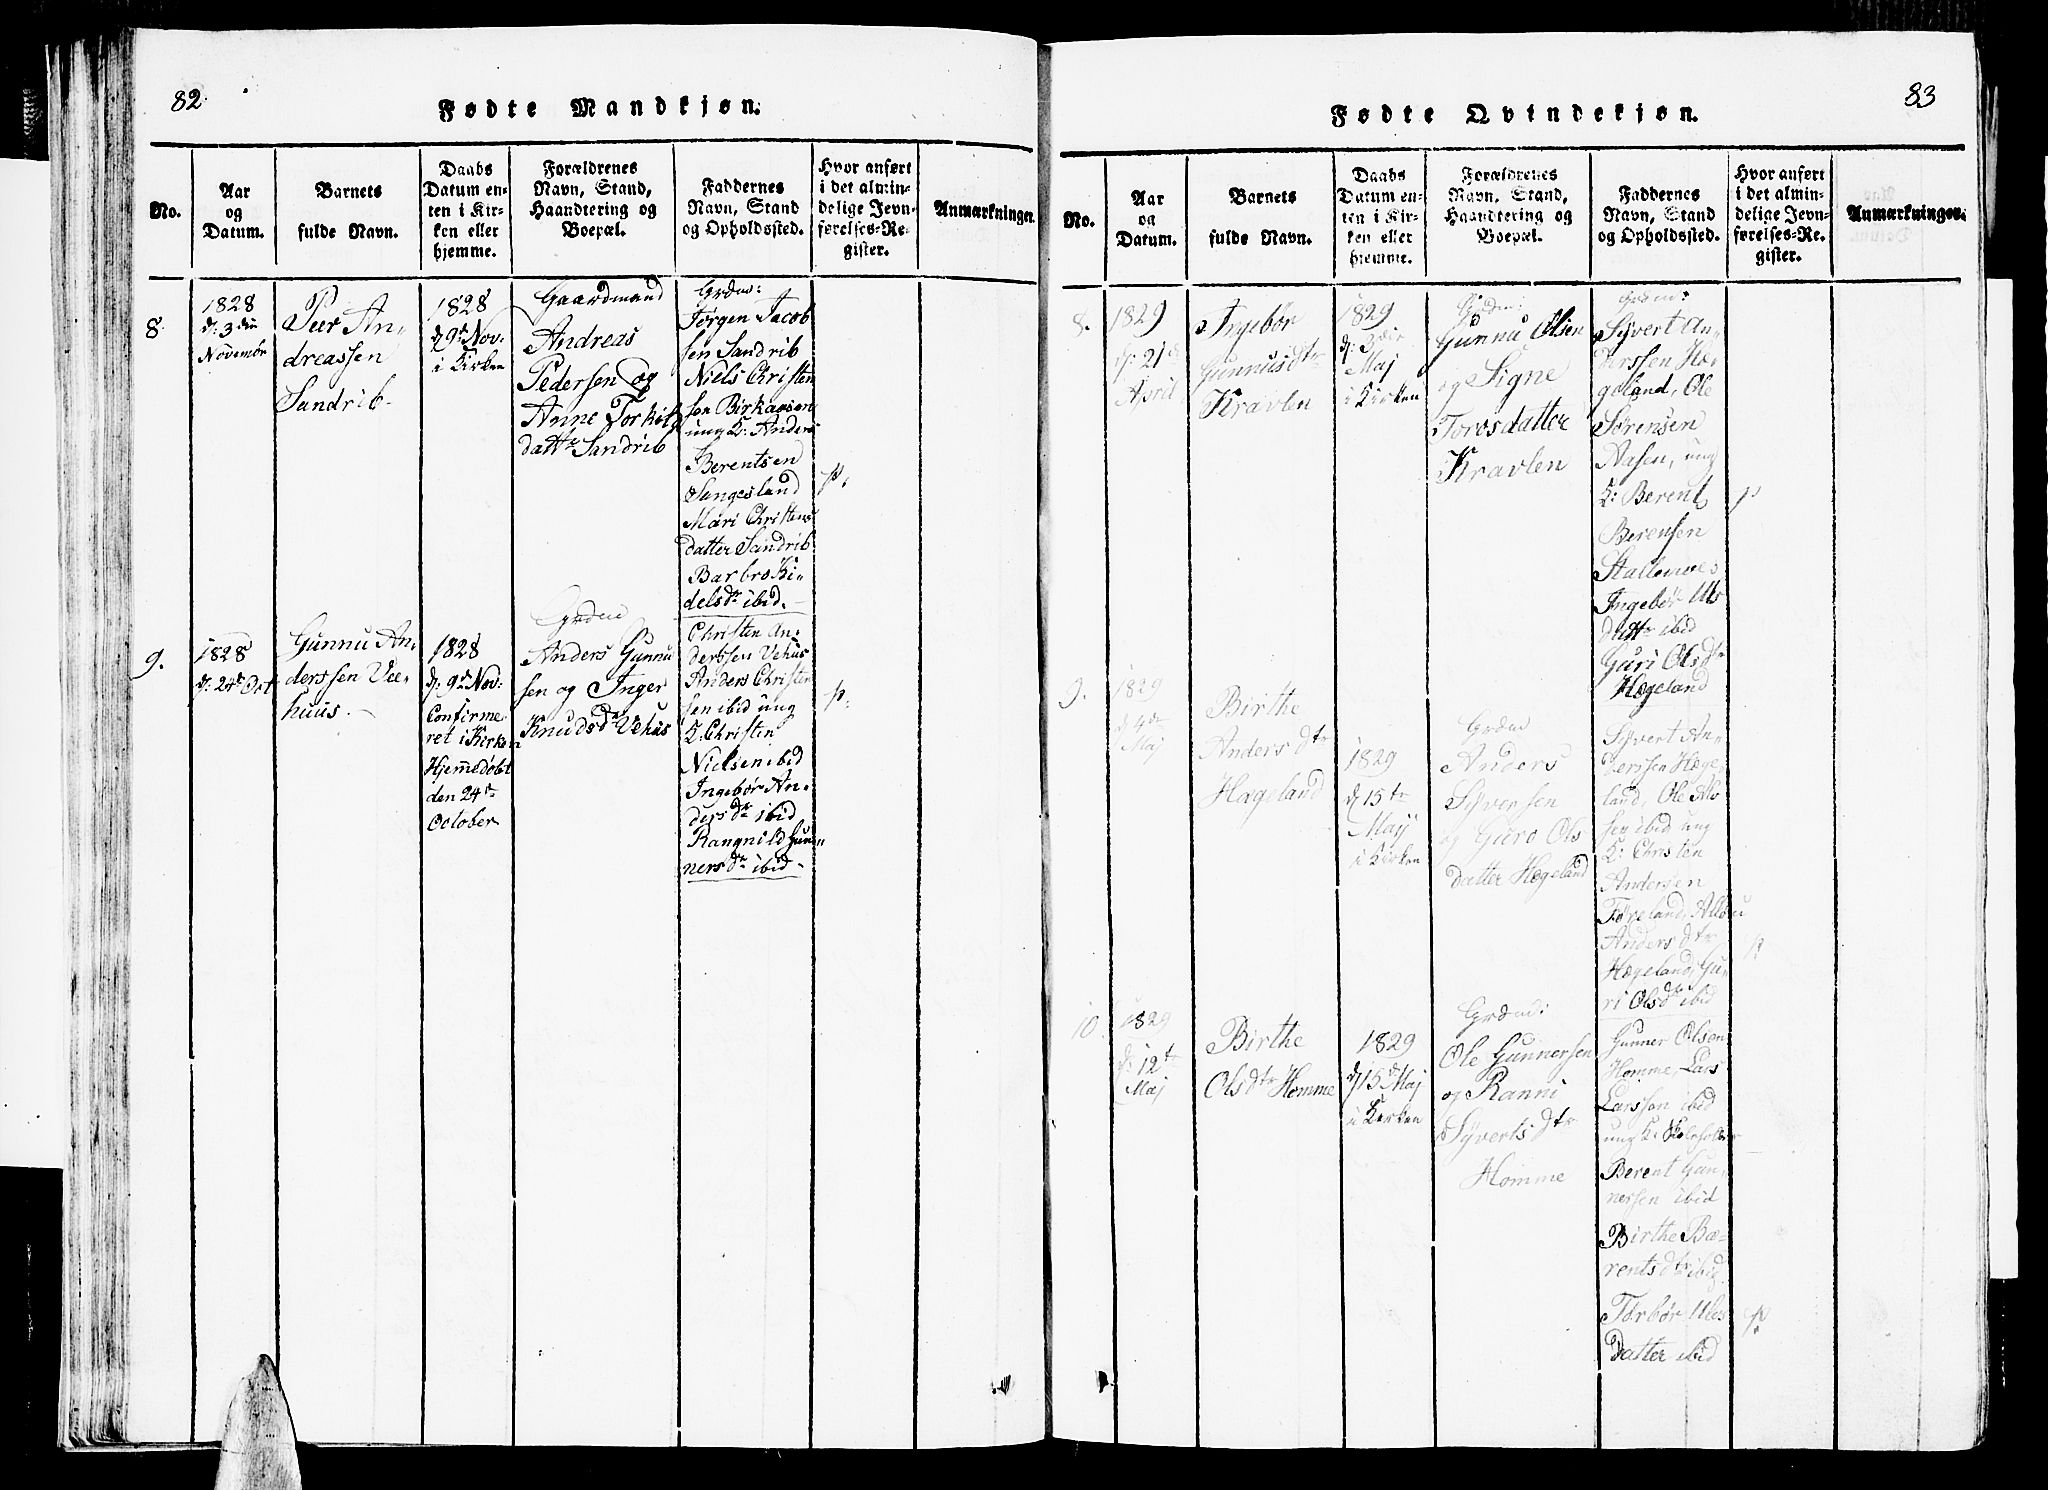 82.
Fødte Mandkjøn.
No.
Aar
og
Datum.
Barnets
fulde Navn.
Daabs
Datum en-
ten i Kir-
ken eller
hjemme.
Forældrenes
Navn, Stand,
Haandtering og
Boepæl.
Faddernes
Navn, Stand
og Opholdssted.
Hvor anført
i det almin-
delige Jevn-
førelses-Re-
gister.
Anmærkninger.
8
1828
d: 3die
Novembr
Peer An-
dreassen
Sandrib.
1828
d 9d Nov:
i Kirken
Gaardmand
Andreas
Pedersen og
Anne Torkils
datter Sandrib
Grdm:
Jørgen Jacob
sen Sandrib
Niels Christen
sen Birkenien
ung K: Anders
Berentsen
Sangesland
Mari Christens
datter Sandrib
Barbro Ki-
delsdr ibid.
p.
9.
1828
d: 24de Oct
Gunnu An-
derssen Vee-
huus.
1828
d: 9d Nov:
Confirme
ret i Kirken
Hjemedøbt
den 24de
October
Grdm
Anders Gunnu
sen og Inger
Knudsdr Vehus
Christen An-
derssen Vehus
Anders Christen
sen ibid ung
K: Christen
Nielsen ibid
Ingebør An-
dersdr ibid
Rangnild Gun
nersdr ibid.
p.
83
Fødte Qvindekjøn.
No.
Aar
og
Datum.
Barnets
fulde Navn.
Daabs
Datum en-
ten i Kir-
ken eller
hjemme.
Forældrenes
Navn, Stand,
Haandtering og
Boepæl.
Faddernes
Navn, Stand
og Opholdssted.
Hvor anført
i det almin-
delige Jevn-
førelses-Re-
gister.
Anmærkninger.
8.
1829
d: 21de
April
Ingebør
Gunnusdtr
Kravlen
1829
d: 3die
Maj
i Kirken
Grdm:
Gunnu Olsen
og Signe
Torosdatter
Kravlen
Grdm:
Syvert An-
derssen Hæ-
geland, Ole
Sørensen
Aasen, ung
K: Berent
Berensen
Stallemoes
Ingebør Uls
datter ibid
Guri Olsdtr
Hægeland
p
9.
1829
d 4de
Maj
Birthe
Andersdtr
Hægeland
1829
d 15te
Maij
i Kirken
Grdm
Anders
Syversen
og Guro Ols
datter Hægeland
Syvert An-
derssen Hæge-
land, Ole
sen ibid ung
K: Christen
Andersen
Føreland,
Andersdtr
Hægeland, Gu-
ri Olsdr ibid
p
10
1829
d: 12te
Maj
Birthe
Olsdtr Homme
1829
d 15d Maj
i Kirken
Grdm:
Ole Gunnersen
og Ranni
Syvertsdtr
Homme
Gunner Olsen
Homme, Lars
Larssen ibid
ung K:
Berent Gun-
nersen ibid
Birthe Bæ-
rentsdtr ibid
Torbør
datter ibid
p.